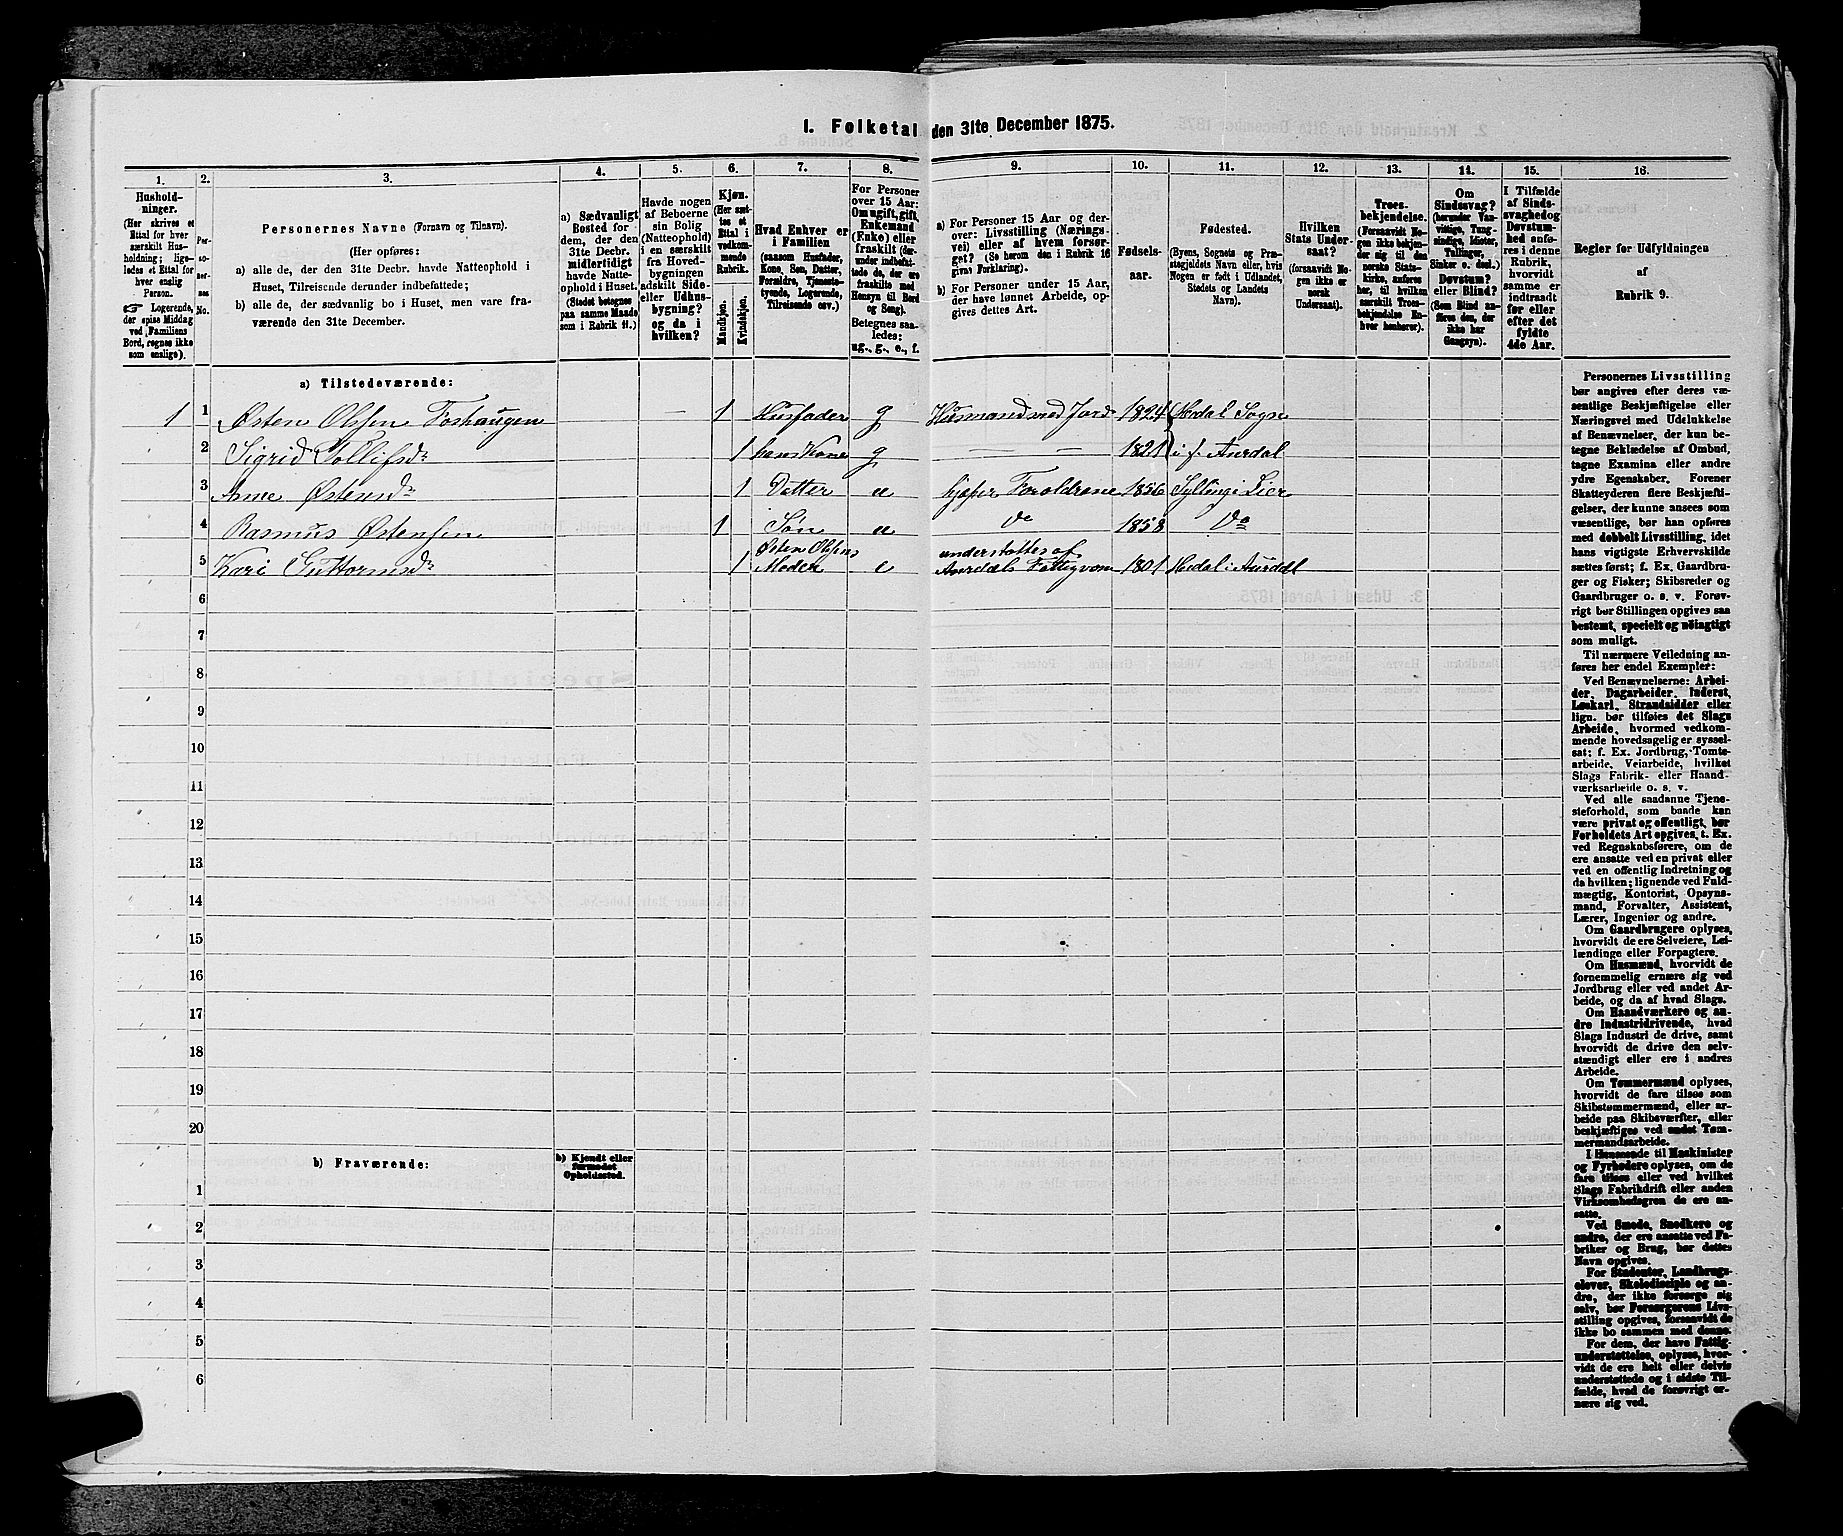 I. Folketal den 31te December 1875.
1. 2. 3. 4. 5. 6. 7. 8. 9. 10. 11. 12. 13. 14. 15. 16.
Husholdninger.
(Her skrives et
Ettal for hver
særskilt Husholdning;
ligeledes et Ettal for
hver enslig
Person.
☞ Logerende,
der spise Middag
ved Familiens
Bord, regnes ikke
som enslige).
Personernes No.
Personernes Navne (Fornavn og Tilnavn).
(Her opføres:
a) alle de, der den 31te Decbr. havde Natteophold i
Huset, Tilreisende derunder indbefattede;
b) alle de, der sædvanlig bo i Huset, men vare fraværende den 31te December.
a) Sædvanligt
Bosted for
dem, der den
31te Decbr.
midlertidigt
havde Natteophold i Huset.
(Stedet betegnes
paa samme Maade
som i Rubrik 11.)
Havde nogen
af Beboerne
sin Bolig
(Natteophold)
i en særskilt
fra Hovedbygningen
adskilt Side-
eller Udhusbygning?
og da i
hvilken?
Kjøn.
(Her sættes et
Ettal i
vedkommende
Rubrik.
Mandkjøn.
Kvindekjøn.
Hvad Enhver er
i Familien
(saasom Husfader,
Kone, Søn, Datter,
Forældre, Tjenestetyende, Logerende,
Tilreisende osv.)
For Personer
over 15 Aar:
Om ugift, gift,
Enkemand
(Enke) eller
fraskilt (derunder indbefattede de, der ere
fraskilte med
Hensyn til Bord
og Seng).
Betegnes saaledes:
ug., g., e., f.
a) For Personer 15 Aar og derover: Livsstilling (Næringsvei) eller af hvem forsørget? (Se herom den i Rubrik 16
givne Forklaring).
b) For Personer under 15 Aar,
der have lønnet Arbeide, opgives dettes Art.
Fødselsaar.
Fødested.
(Byens, Sognets og Præstegjeldets Navn eller, hvis
Nogen er født i Udlandet,
Stedets og Landets
Navn).
Hvilken
Stats Undersaat?
(forsaavidt Nogen ikke er
norsk
Undersaat).
Troesbekjendelse.
(Forsaavidt Nogen ikke bekjender sig til den
norske Statskirke, anføres
her, til hvilken
særskilt Troesbekjendelse Enhver henhører).
Om
Sindssvag?
(herunder Vanvittige, Tungsindige, Idioter,
Tullinger,
Sinker o. desl.)
Døvstum?
eller Blind?
(Som Blind anføres den, der
ikke har
Gangsyn).
I Tilfælde
af Sindssvaghed og
Døvstumhed anføres i denne
Rubrik,
hvorvidt
samme er
indtraadt
før eller
efter det
fyldte
4de Aar.
Regler for Udfyldningen
af
Rubrik 9.
a) Tilstedeværende:
1 1 Østen Olssen Foshaugen — 1 Husfader g Husmand med Jord 1824 Hedal Sogn
2 Sigrid Tollifsdr 1 hans Kone g — — 1821 i f. Aurdal
3 Anne Østensdr 1 Datter u hjelper Foreldrene 1856 Sylling i Lier
4 Rasmus Østensen 1 Søn u do 1858 do
5 Kari Guttormsdr 1 Østen Olssens Moder e understøttes af Aurdals Fattigvæsen 1801 Hedal i Aurdal
6
7
8
9
10
11
12
13
14
15
16
17
18
19
20
b) Fraværende:
b) Kjendt eller
formodet
Opholdssted.
1
2
3
4
5
6
Personernes Livsstilling
bør angives efter deres væsentlige Beskjæftigelse eller
Næringsvei med Udelukkelse
af Benævnelser, der kun betegne Beklædelse af Ombud,
tagne Examina eller andre
ydre Egenskaber. Forener
Skatteyderen flere Beskjæftigelser, der kunne ansees som
væsentlige, bør han opføres
med dobbelt Livsstilling, idet
hans vigtigste Erhvervskilde
sættes først; f. Ex. Gaardbruger og Fisker; Skibsreder og
Gaardbruger o. s. v. Forøvrigt bør Stillingen opgives saa
bestemt, specielt og nøiagtigt
som muligt.
Til nærmere Veiledning anføres her endel Exempler:
Ved Benævnelserne: Arbeider, Dagarbeider, Inderst,
Løskarl, Strandsidder eller
lign. bør tilføies det Slags
Arbeide, hvormed vedkommende hovedsagelig er sysselsat; f. Ex. Jordbrug, Tomtearbeide, Veiarbeide, hvilket
Slags Fabrik- eller Haandværksarbeide o. s. v.
Ved alle saadanne Tjenesteforhold, som baade kan
være privat og offentligt, bør
Forholdets Art opgives, t. Ex.
ved Regnskabsførere, om de
ere ansatte ved en privat eller
ved en offentlig Indretning og
da hvilken; lignende ved Fuldmægtig, Kontorist, Opsynsmand, Forvalter, Assistent,
Lærer, Ingeniør og andre.
Om Gaardbrugere oplyses,
hvorvidt de ere Selveiere, Leilændinge eller Forpagtere.
Om Husmænd, hvorvidt de
fornemmelig ernære sig ved
Jordbrug eller ved andet Arbeide, og da af hvad Slags.
Om Haandværkere og andre Industridrivende, hvad
Slags Industri de drive, samt
hvorvidt de drive den selvstændigt eller ere i andres
Arbeide.
Om Tømmermænd oplyses,
hvorvidt de fare tilsøs som
Skibstømmermænd, eller arbeide paa Skibsværfter, eller
beskjæftiges ved andet Tømmermandsarbeide.
I Henseende til Maskinister
og Fyrbødere oplyses, om de
fare tilsøs eller ved hvilket
Slags Fabrikdrift eller anden
Virksomhedsgren de ere ansatte.
Ved Smede, Snedkere og
andre, der ere ansatte ved Fabriker og Brug, bør dettes
Navn opgives.
For Studenter, Landbrugselever, Skoledisciple og andre, der ikke forsørge sig
selv, bør Forsørgerens Livsstilling opgives, forsaavidt de
ikke bo sammen med denne.
For dem, der have Fattigunderstøttelse, oplyses, hvorvidt de ere helt eller delvis
understøttede og i sidste Tilfælde, hvad de forøvrigt ernære sig ved.